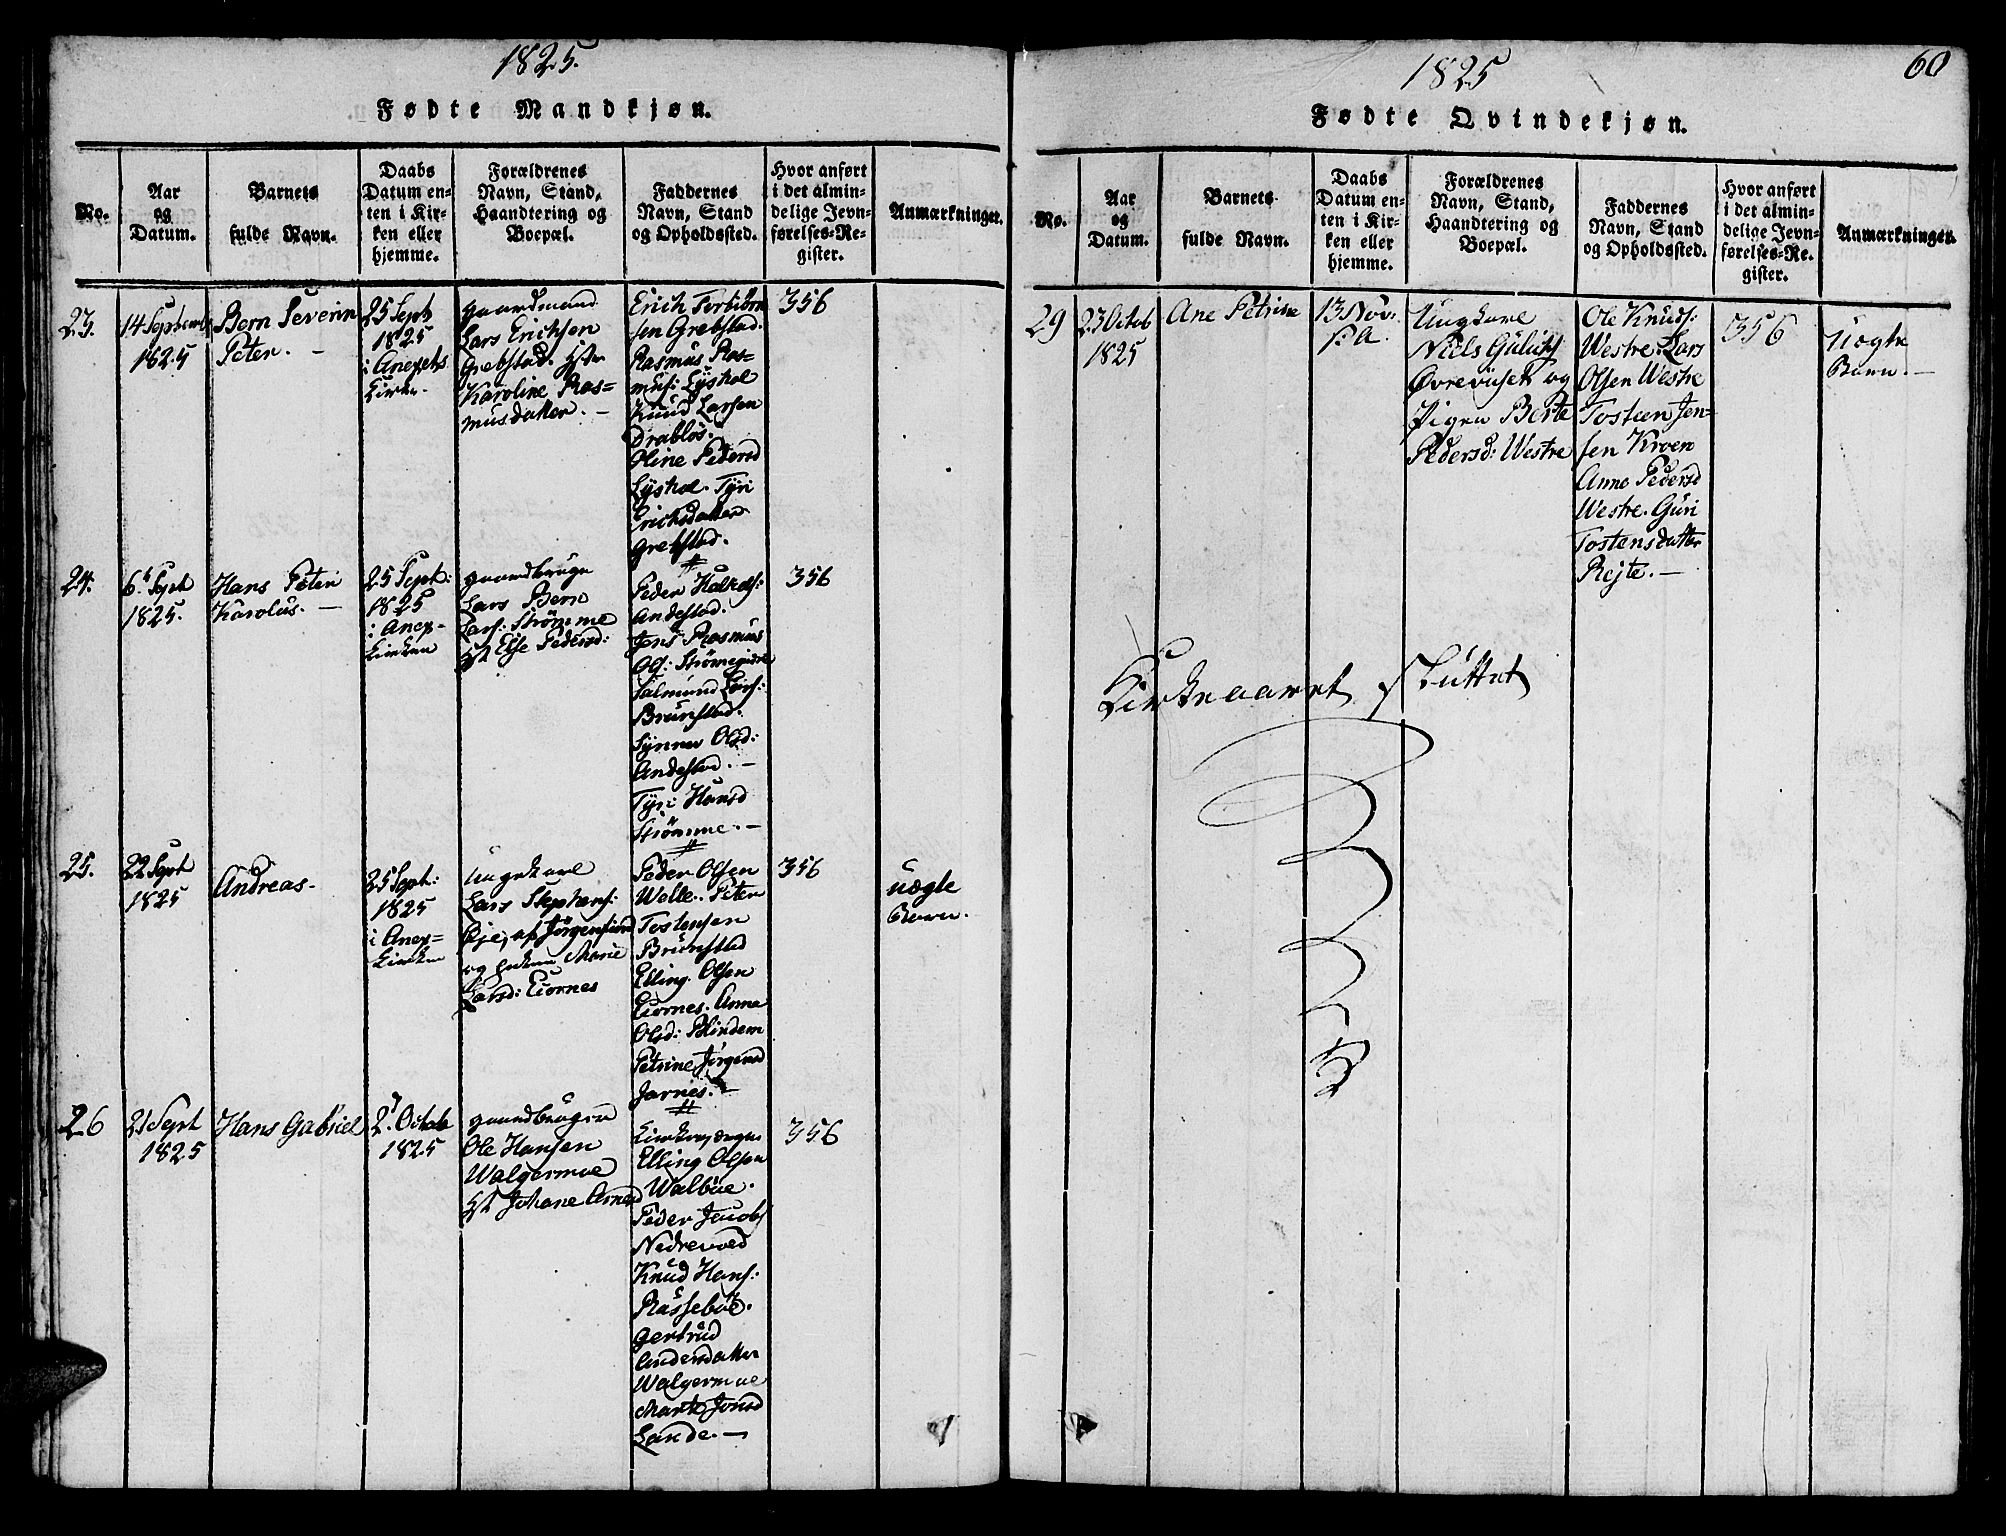 1825.
Fødte Mandkjøn.
No.
Aar
og
Datum.
Barnets
fulde Navn.
Daabs
Datum en-
ten i Kir-
ken eller
hjemme.
Forældrenes
Navn, Stand,
Haandtering og
Boepæl.
Faddernes
Navn, Stand
og Opholdssted.
Hvor anført
i det almin-
delige Jevn-
førelses-Re-
gister.
Anmærkninger.
23.
14 Septembr
1825
Bern Severin
Peter. –
25 Sept
1825
i Anexets
Kirke.
gaardmand
Lars Erichsen
Grebstad. Hstr
Karoline Ras=
musdatter. –
Erich Torbiørn
sen Grebstad.
Rasmus Ras=
mus: Lyshol
Knud Larsen
Drabløs.
Oline Pedersd
Lyshol. Tyri
Erichsdatter
Grebstad.
356
24.
6t Sept
1825.
Hans Peter
Karolus. –
25 Sept:
1825
i Anex=
Kirken
gaardbruger
Lars Bern
Lars: Strømme
Hst Else Pedersd:
Peder
Andestad.
Jens Rasmus
Ols: Strømegjerde
Salmund Lars:
Brunstad.
Synner Olsd:
Andestad. –
Tyri Hansd
Strømme. –
356
25.
22 Sept
1825
Andreas.
25 Sept:
1825
i Anex=
Kirken
Ungekarl
Lars Stephens:
Eje, af Jørgenfiord
og Marie
Larsd: Tiornes
Peder Olsen
Welle. Peter
Tostensen
Brunstad
Elling Olsen
Tiornes. Anna
Olsd: Blindem
Petrine Jørgensd
Jarnes. –
356
uægte
Barn.
26
21 Sept
1825
Hans Gabriel
2 Octob
1825
gaardbruger
Ole Hansen
Walgermoe
Hst Johane Arnesd
Kirkeværge
Elling Olsen
Walbøe.
Peder Jacobs
Nedrevold
Knud Hans:
Rassebøe.
Gertrud
Andersdatter
Walgermoe
Marte Jonsd
Lande. –
356
1825
60
Fødte Qvindekjøn.
No.
Aar
og
Datum.
Barnets
fulde Navn.
Daabs
Datum en-
ten i Kir-
ken eller
hjemme.
Forældrenes
Navn, Stand,
Haandtering og
Boepæl.
Faddernes
Navn, Stand
og Opholdssted.
Hvor anført
i det almin-
delige Jevn-
førelses-Re-
gister.
Anmærkninger.
29
23 Octob
1825
Ane Petrine
13 Nov:
s: A.
Ungkarl
Niels Guluks
Øvrevuset og
Pigen Berte
Pedersd: Westre
Ole Knuds:
Westre. Lars
Olsen Westre
Tosteen Jen=
sen Kroen
Anne Pedersd
Westre. Guri
Tostensdatter
Rejte. –
356
Uægte
Barn. –
Kirkeaaret sluttet